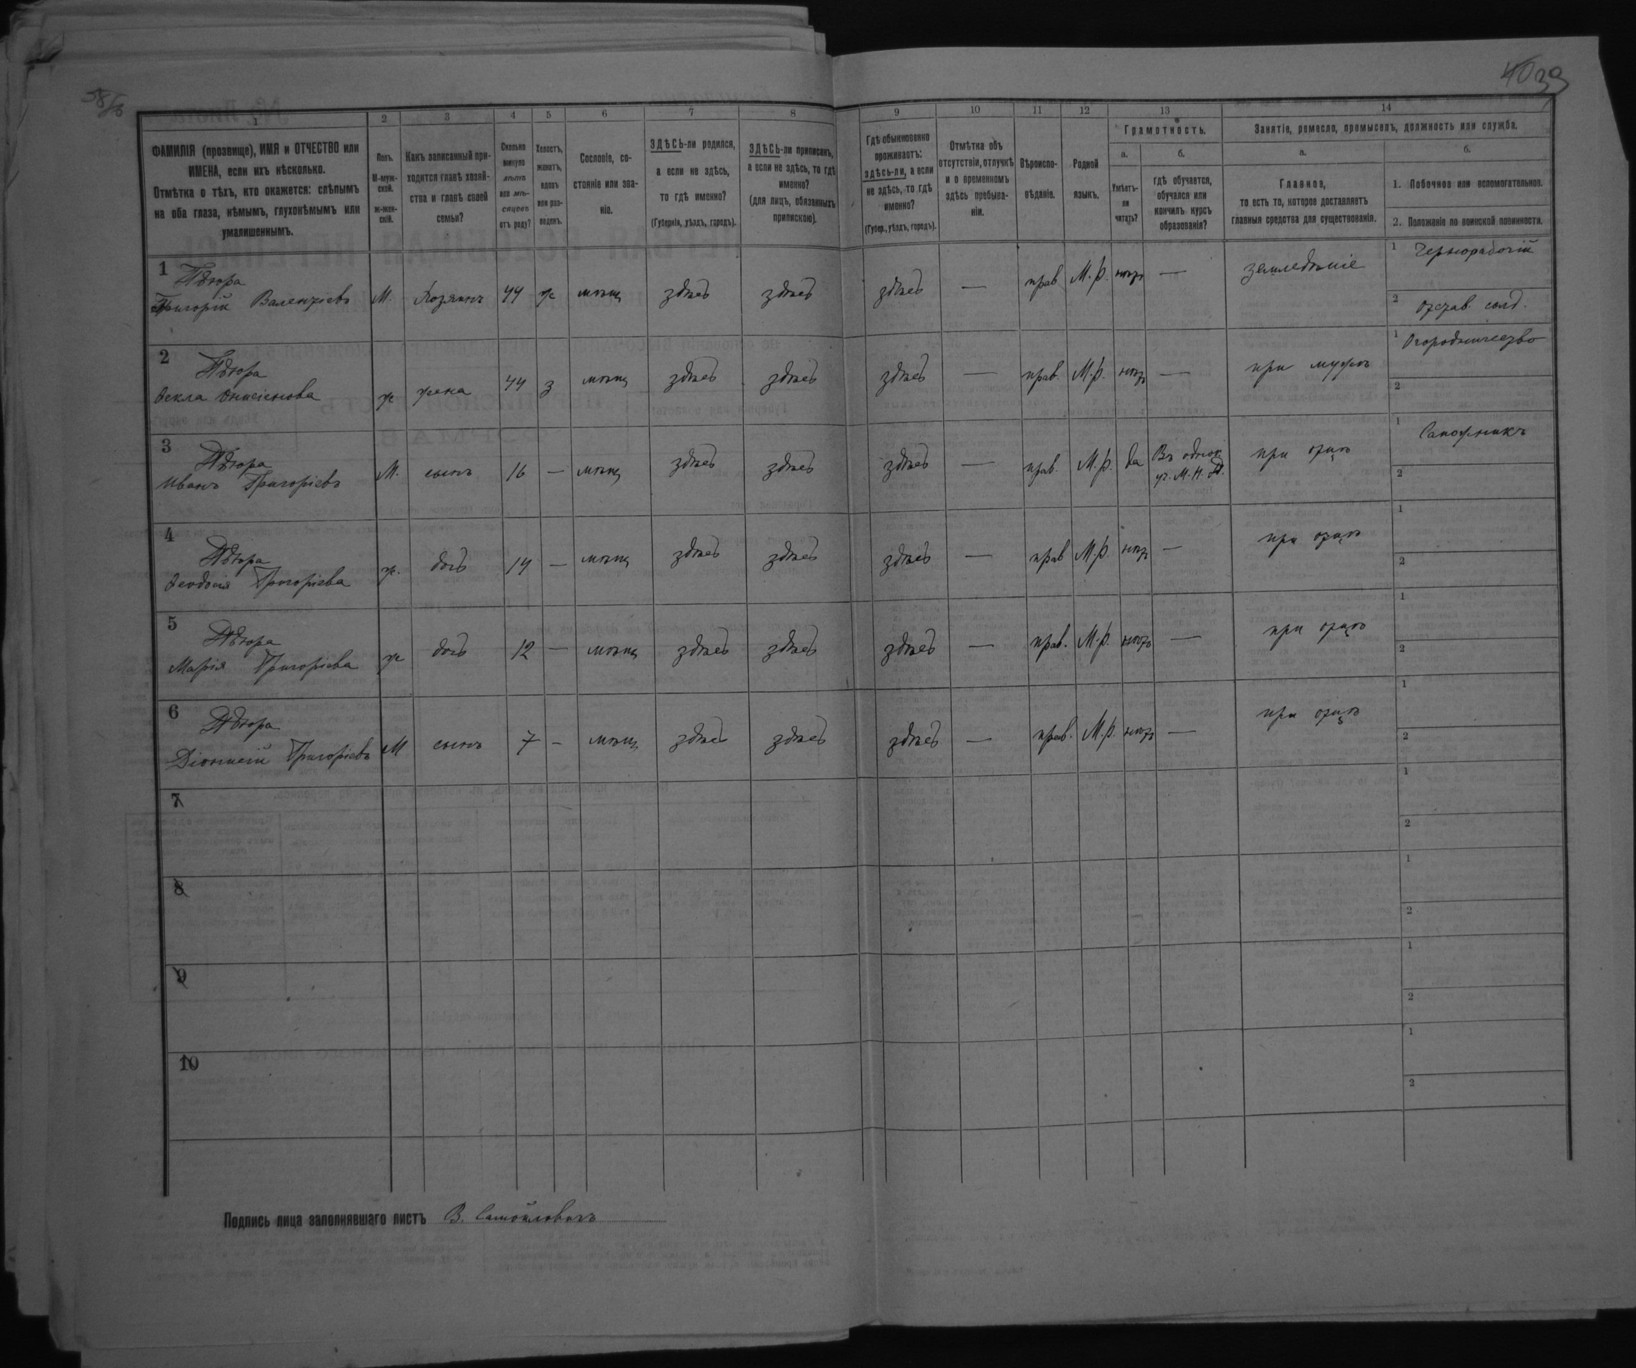 4039
1 2 3 4 5 6 7 8 9 10 11 12 13 14
ФАМИЛІЯ (прозвище), ИМЯ и ОТЧЕСТВО или
ИМЕНА, если ихъ нѣсколько.
Отмѣтка о тѣхъ, кто окажется: слѣпымъ
на оба глаза, нѣмымъ, глухонѣмымъ или
умалишеннымъ.
Полъ.
М-муж-
ской.
ж-жен-
скій.
Какъ записанный при-
ходится главѣ хозяй-
ства и главѣ своей
семьи?
Сколько
минуло
лѣтъ
или мѣ-
сяцевъ
отъ роду?
Холостъ,
женатъ,
вдовъ
или раз-
веденъ.
Сословіе, со-
стояніе или зва-
ніе.
ЗДѢСЬ-ли родился,
а если не здѣсь,
то гдѣ именно?
(Губернія, уѣздъ, городъ).
ЗДѢСЬ-ли приписанъ,
а если не здѣсь, то гдѣ
именно?
(для лицъ, обязанныхъ
припискою).
Гдѣ обыкновенно
проживаетъ:
здѣсь-ли, а если
не здѣсь, то гдѣ
именно?
(Губер., уѣздъ, городъ).
Отмѣтка объ
отсутствіи, отлучкѣ
и о временномъ
здѣсь пребыва-
ніи.
Вѣроиспо-
вѣданіе.
Родной
языкъ.
Грамотность.
а. б.
Умѣетъ-
ли
читать?
гдѣ обучается,
обучался или
кончилъ курсъ
образованія?
Занятіе, ремесло, промыселъ, должность или служба.
а. б.
Главное,
то есть то, которое доставляетъ
главныя средства для существованія.
1. Побочное или вспомогательное.
2. Положеніе по воинской повинности.
1 Григорій М. Хозяинъ 44 ж мѣщ здѣсь здѣсь здѣсь — прав М.р. нѣтъ — земледѣліе 1 Чернорабочій
2 отстав. солд.
2 Ѳекла ж жена 44 з мѣщ здѣсь здѣсь здѣсь — прав. М.р. нѣтъ — при мужѣ 1 Огородничество
2
3 Иванъ Григорьевъ М. сынъ 16 — мѣщ здѣсь здѣсь здѣсь — прав. М.р. да Въ однок.
уч. М. Н. П. при отцѣ 1 Сапожникъ
2
4 Ѳеодосія Григорьева ж. дочь 14 — мѣщ здѣсь здѣсь здѣсь — прав М.р. нѣтъ — при отцѣ 1
2
5 Марія Григорьева ж дочь 12 — мѣщ здѣсь здѣсь здѣсь — прав. М.р. нѣтъ — при отцѣ 1
2
6 Діонисій Григорьевъ М сынъ 7 — мѣщ здѣсь здѣсь здѣсь — прав. М.р. нѣтъ — при отцѣ 1
2
7 1
2
8 1
2
9 1
2
10 1
2
Подпись лица заполнявшаго листъ В. Самойловичъ